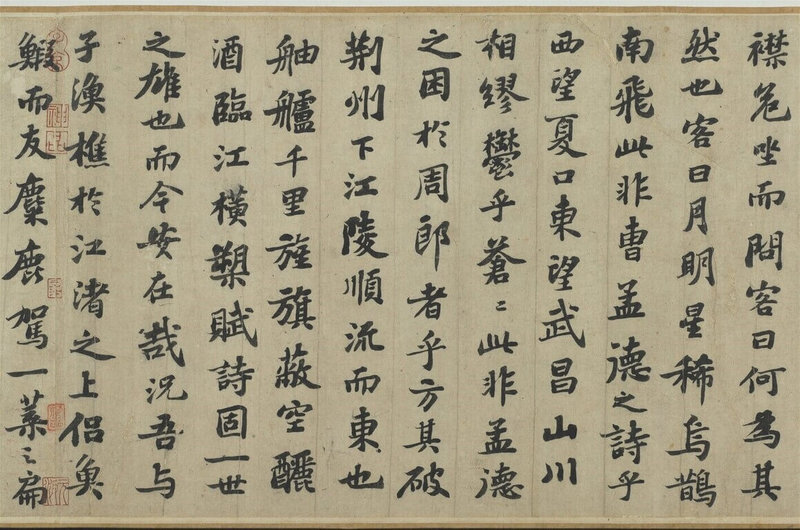 襟危坐而問客曰何為其
然也客曰月明星稀烏鵲
南飛此非曹孟德之詩乎
西望夏口東望武昌山川
相繆鬱乎蒼〻此非孟德
之困於周郎者乎方其破
荆州下江陵順流而東也
舳艫千里旌旗蔽空釃
酒臨江橫槊賦詩固一世
之雄也而今安在哉況吾与
子漁樵於江渚之上侣魚
鰕而友麋鹿駕一葉之扁